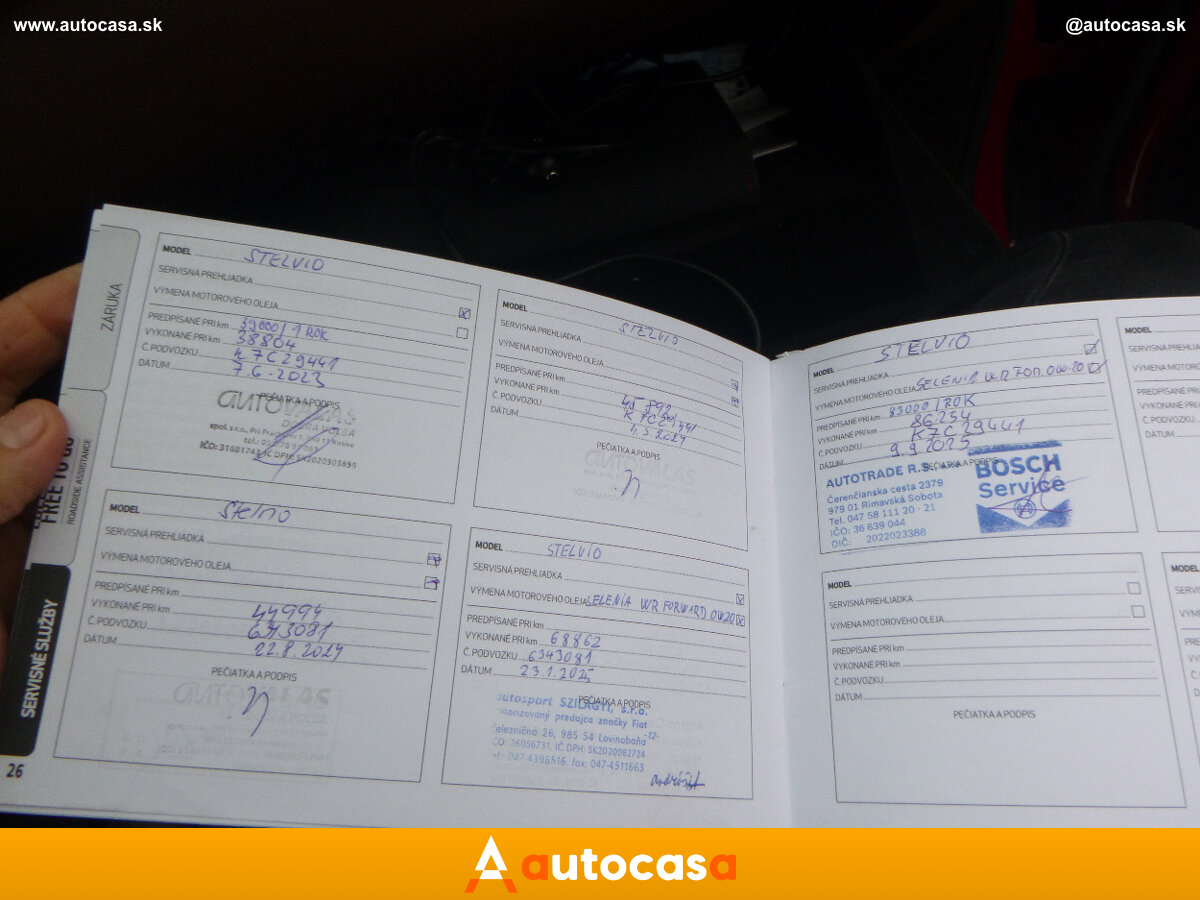 www.autocasa.sk
@autocasa.sk
ZÁRUKA
FREE TO GO
ROADSIDE ASSISTANCE
SERVISNÉ SLUŽBY
26
MODEL STELVIO
SERVISNÁ PREHLIADKA
VÝMENA MOTOROVÉHO OLEJA
PREDPÍSANÉ PRI km 39000/1 ROK
VYKONANÉ PRI km 38804
Č. PODVOZKU K7C29441
DÁTUM 7.6.2023
PEČIATKA A PODPIS
spol. s r.o.,
IČO: 31681743, IČ DPH: SK2020503650
MODEL STELVIO
SERVISNÁ PREHLIADKA
VÝMENA MOTOROVÉHO OLEJA
PREDPÍSANÉ PRI km
VYKONANÉ PRI km
Č. PODVOZKU
DÁTUM
PEČIATKA A PODPIS
MODEL Stelvio
SERVISNÁ PREHLIADKA
VÝMENA MOTOROVÉHO OLEJA
PREDPÍSANÉ PRI km
VYKONANÉ PRI km 44994
Č. PODVOZKU 6343081
DÁTUM 22.8.2024
PEČIATKA A PODPIS
MODEL STELVIO
SERVISNÁ PREHLIADKA
VÝMENA MOTOROVÉHO OLEJA SELENIA WR FORWARD 0W20
PREDPÍSANÉ PRI km
VYKONANÉ PRI km 68862
Č. PODVOZKU 6343081
DÁTUM 23.1.2025
PEČIATKA A PODPIS
utosport SZILÁGYI, s.r.o.
torizovaný predajca značky Fiat
-12-
elezničná 26, 985 54 Lovinobaňa
ČO: 36056731, IČ DPH: SK2020082724
047-4396516, fax: 047-4511663
MODEL STELVIO
SERVISNÁ PREHLIADKA
VÝMENA MOTOROVÉHO OLEJA SELENIA WR FOR. 0W-20
PREDPÍSANÉ PRI km 83000/ROK
VYKONANÉ PRI km 86254
Č. PODVOZKU K7C29441
DÁTUM 9.9.2025
PEČIATKA A PODPIS
AUTOTRADE R.S.
Čerenčianska cesta 2379
979 01 Rimavská Sobota
Tel. 047 58 111 20 - 21
IČO: 36 639 044
DIČ: 2022023388
BOSCH
Service
MODEL
SERVISNÁ PREHLIADKA
VÝMENA MOTOROVÉHO OLEJA
PREDPÍSANÉ PRI km
VYKONANÉ PRI km
Č. PODVOZKU
DÁTUM
PEČIATKA A PODPIS
MODEL
DÁTUM
MODEL
autocasa